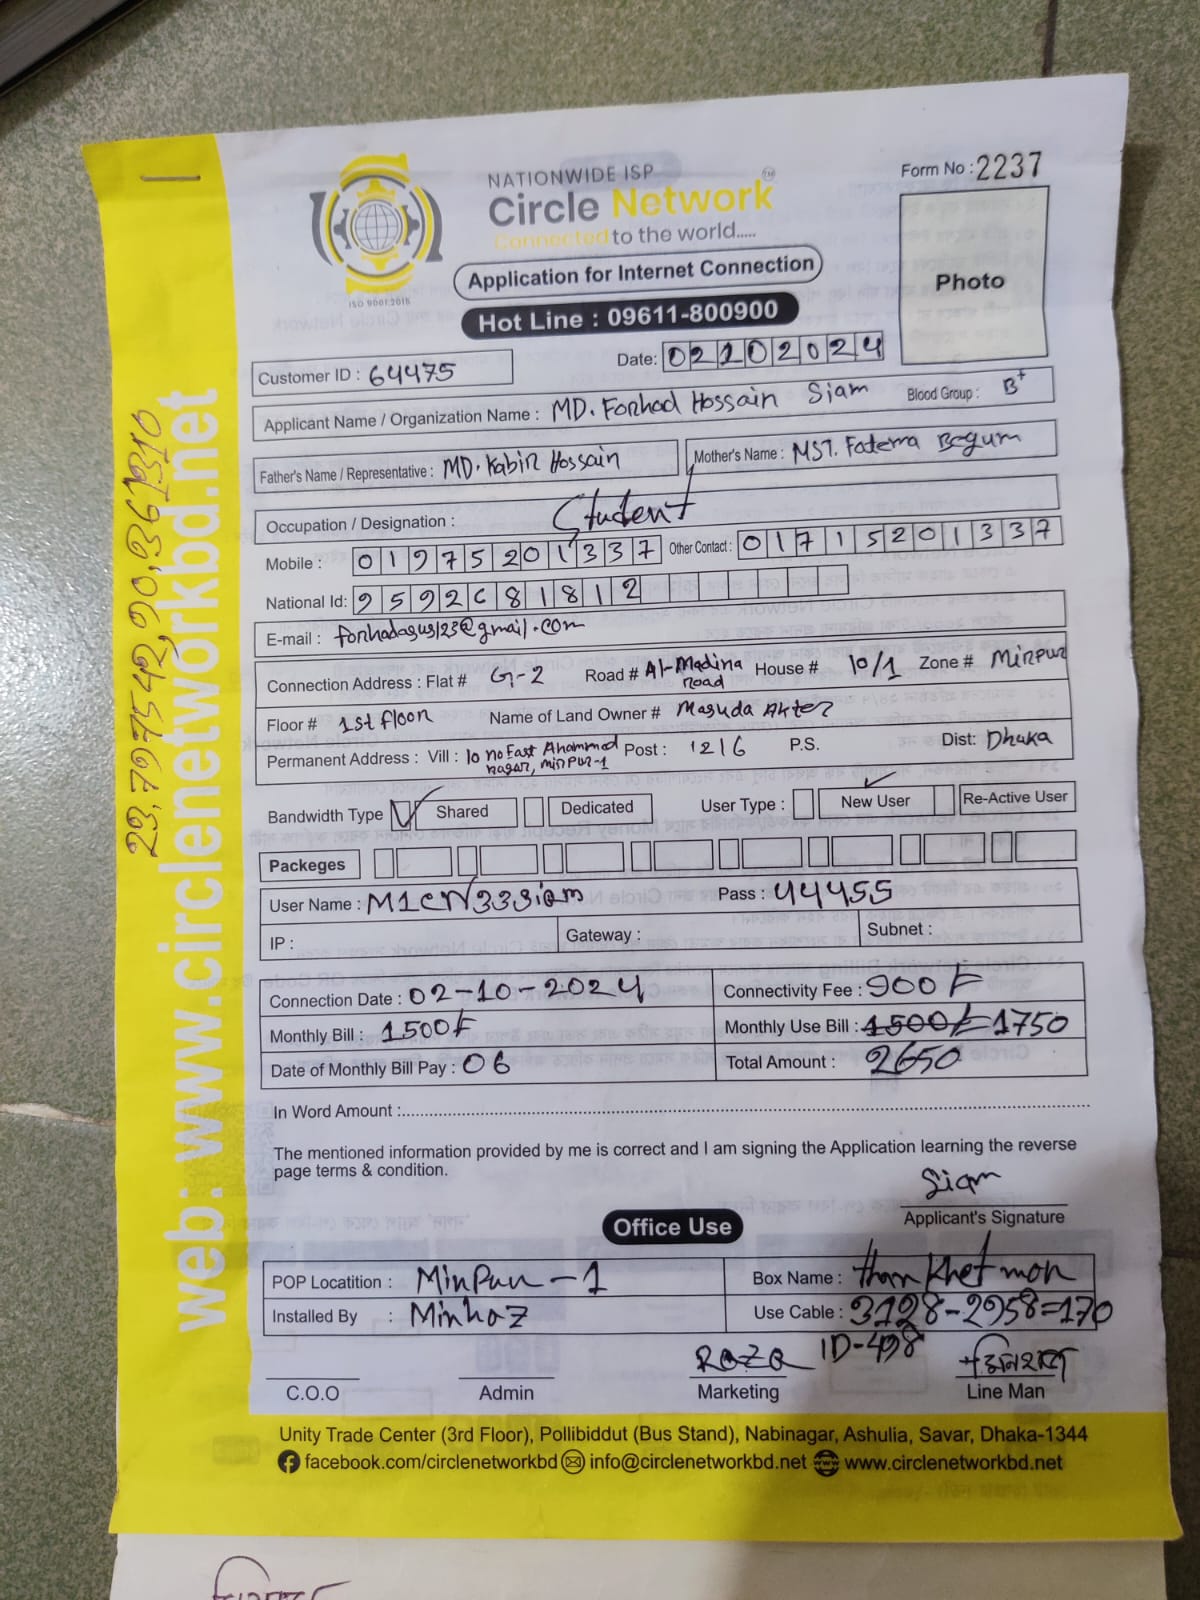 Form No : 2237
NATIONWIDE ISP
Circle Network TM
Connected to the world.....
ISO 9001:2015
Application for Internet Connection
Photo
Hot Line : 09611-800900
Date: 02102024
Customer ID : 64475
Applicant Name / Organization Name : MD. Forhad Hossain Siam Blood Group : B+
Father's Name / Representative : MD. Kabir Hossain Mother's Name : MST. Fatema Begum
Occupation / Designation : Student
Mobile : 01975201337 Other Contact : 01715201337
National Id: 9592681812
E-mail : @gmail.com
Connection Address : Flat # G-2 Road # Al-Madina road House # 10/1 Zone # Mirpur
Floor # 1st floor Name of Land Owner # Masuda Akter
Permanent Address : Vill : 10 no East Ahammad nagar, mirpur-1 Post : 1216 P.S. Dist: Dhaka
Bandwidth Type Shared Dedicated User Type : New User Re-Active User
Packeges
User Name : M1CN333siam Pass : 44455
IP : Gateway : Subnet :
Connection Date : 02-10-2024 Connectivity Fee : 900৳
Monthly Bill : 1500৳ Monthly Use Bill : 1500৳ = 1750
Date of Monthly Bill Pay : 06 Total Amount : 2650
In Word Amount :
The mentioned information provided by me is correct and I am signing the Application learning the reverse
page terms & condition.
Siam
Applicant's Signature
Office Use
POP Locatition : Mirpur-1 Box Name :
Installed By : Minhaz Use Cable : 3128-2958=170
Raza ID-498
C.O.O Admin Marketing Line Man
Unity Trade Center (3rd Floor), Pollibiddut (Bus Stand), Nabinagar, Ashulia, Savar, Dhaka-1344
facebook.com/circlenetworkbd info@circlenetworkbd.net www.circlenetworkbd.net
web: www.circlenetworkbd.net